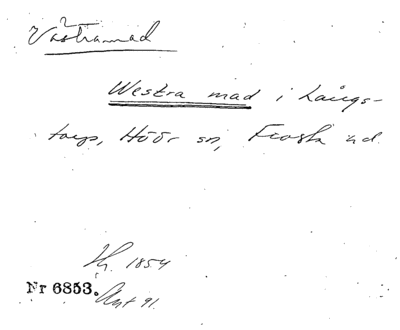 Västramad
Westra mad i Långs-
torp, Höör sn, Frosta hd.
Hr. 1854
Nr 6853.
Akt 91.